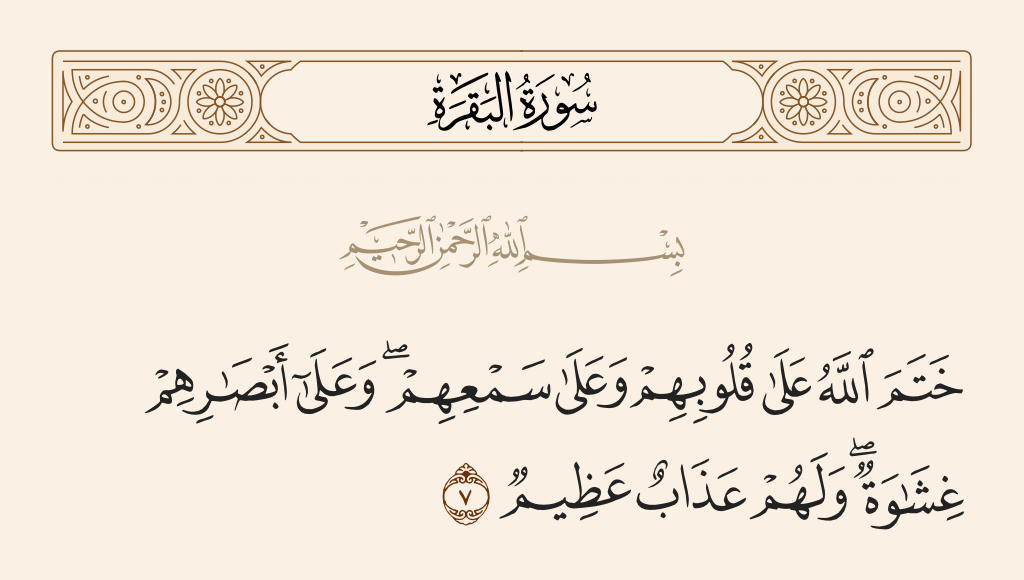 سُورَةُ البَقَرَةِ
بِسْمِ ٱللَّهِ ٱلرَّحْمَٰنِ ٱلرَّحِيمِ
خَتَمَ ٱللَّهُ عَلَىٰ قُلُوبِهِمْ وَعَلَىٰ سَمْعِهِمْ ۖ وَعَلَىٰٓ أَبْصَـٰرِهِمْ
غِشَـٰوَةٌ ۖ وَلَهُمْ عَذَابٌ عَظِيمٌ ٧